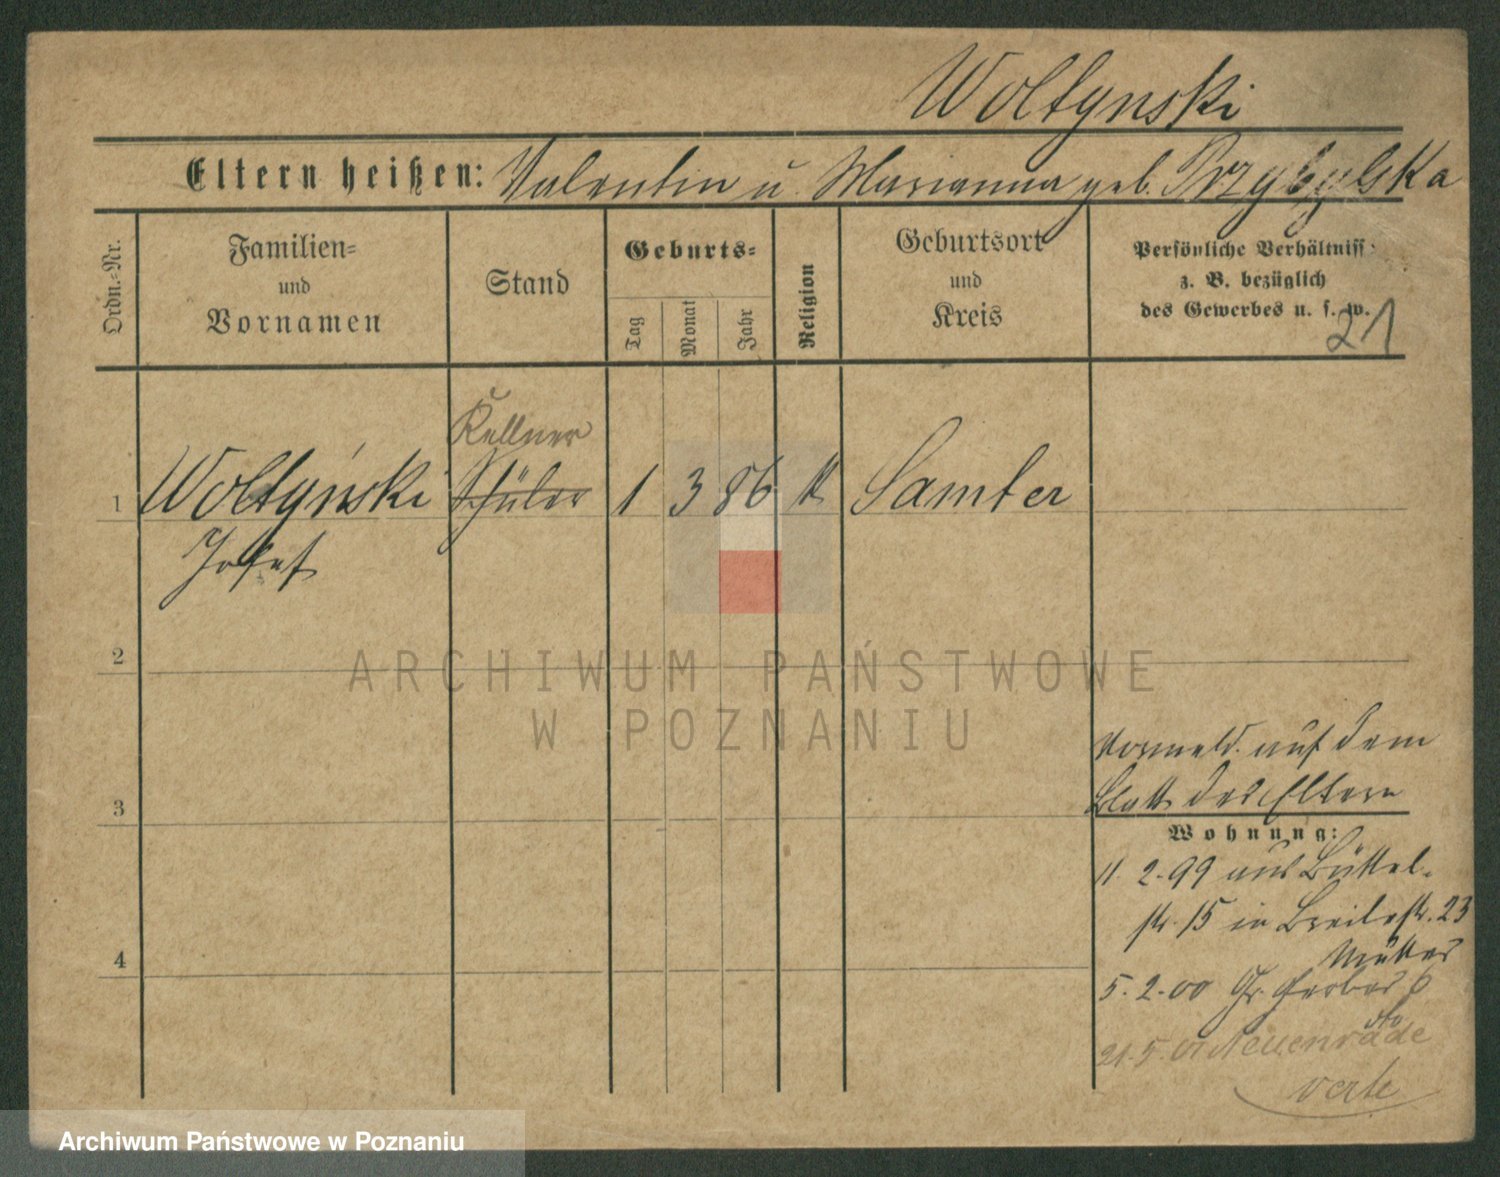 Woltynski
Eltern heißen: Valentin u. Marianna geb. Przybylska
Ordn.-Nr.
Familien-
und
Vornamen
Stand
Geburts-
Tag
Monat
Jahr
Religion
Geburtsort
und
Kreis
Persönliche Verhältniss
z. B. bezüglich
des Gewerbes u. s. w.
21
Kellner
1 Woltyński Schüler 1 3 86 k Samter
Josef
2
ARCHIWUM PAŃSTWOWE
W POZNANIU
3
Vormeld. auf dem
Blatt des Eltern
Wohnung:
11. 2. 99 aus Büttel-
str. 15 in Breitestr. 23
Mutter
4
5. 2. 00 Gr. Gerber 6
21. 5. 01 Neuenrade
Archiwum Państwowe w Poznaniu